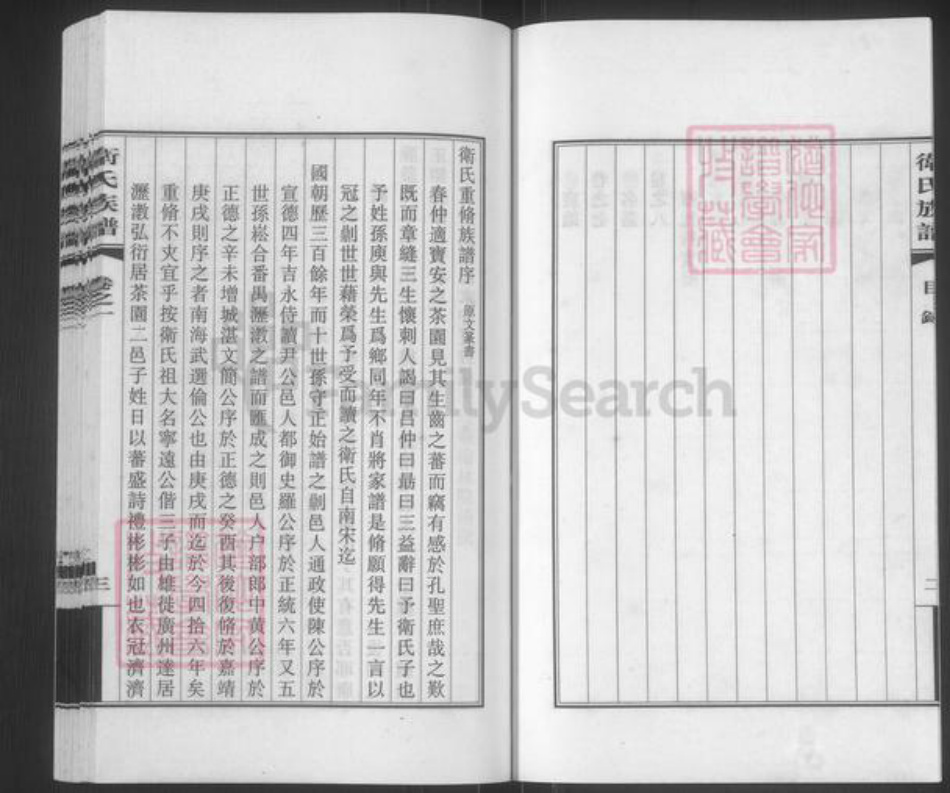 衛氏族譜
目錄
二
衛氏重脩族譜序
原文篆書
春仲適寶安之茶園見其生齒之蕃而竊有感於孔聖庶哉之歎
既而章縫三生懷刺人謁曰呂仲曰勗曰三益辭曰予衛氏子也
予姓孫庾與先生爲鄉同年不肖將家譜是脩願得先生一言以
冠之剙世世藉榮爲予受而讀之衛氏自南宋迄
國朝歷三百餘年而十世孫守正始譜之剙邑人通政使陳公序於
宣德四年吉永侍讀尹公邑人都御史羅公序於正統六年又五
世孫崧合番禺瀝滘之譜而匯成之則邑人户部郎中黄公序於
正德之辛未增城湛文簡公序於正德之癸酉其後復脩於嘉靖
庚戌則序之者南海武選倫公也由庚戌而迄於今四拾六年矣
重脩不夾宜乎按衛氏祖大名寧遠公偕三子由雄徙廣州逹居
瀝滘弘衍居茶園二邑子姓日以蕃盛詩禮彬彬如也衣冠濟濟
衛氏族譜
卷之一
三
FamilySearch